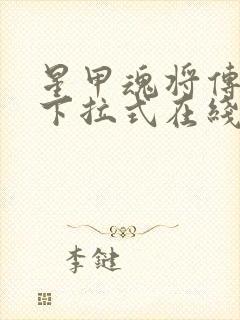 星甲魂将傳
下拉式在綫
李鍵